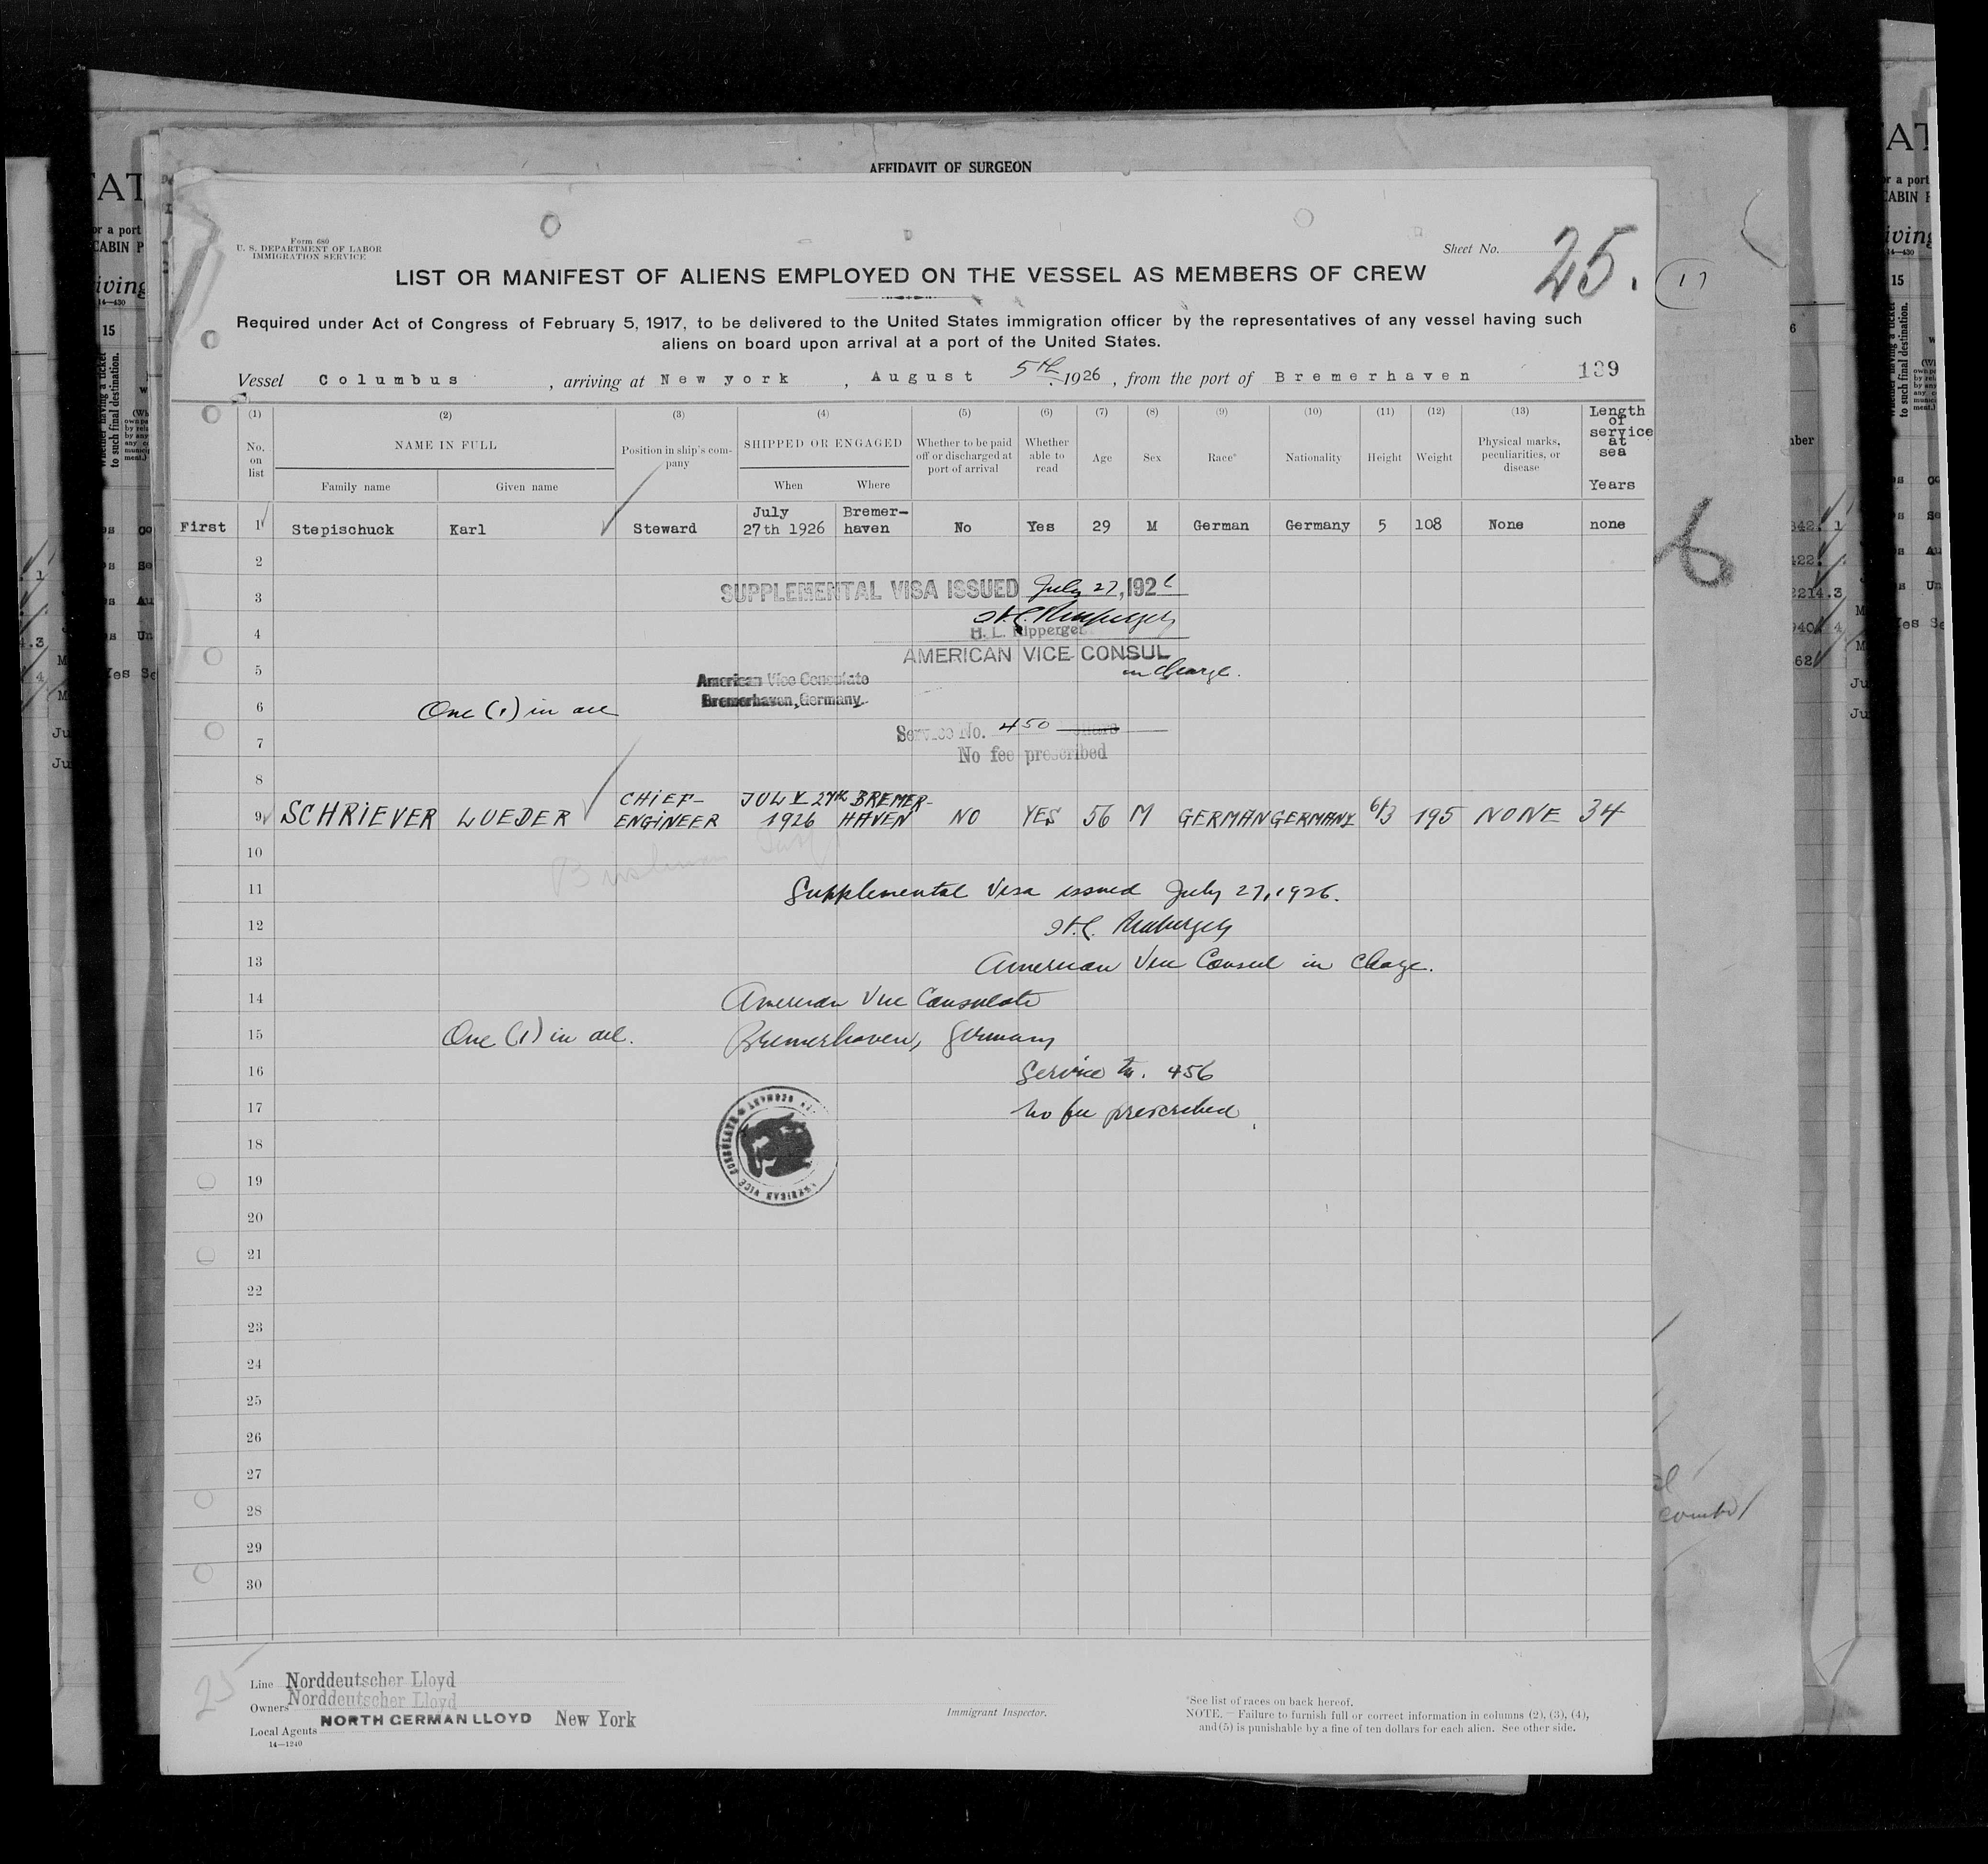 AFFIDAVIT OF SURGEON
Form 680
U. S. DEPARTMENT OF LABOR
IMMIGRATION SERVICE
Sheet No. 25.
LIST OR MANIFEST OF ALIENS EMPLOYED ON THE VESSEL AS MEMBERS OF CREW
Required under Act of Congress of February 5, 1917, to be delivered to the United States immigration officer by the representatives of any vessel having such
aliens on board upon arrival at a port of the United States.
Vessel Columbus , arriving at New york , August 5th. 1926 , from the port of Bremerhaven 139
(1) (2) (3) (4) (5) (6) (7) (8) (9) (10) (11) (12) (13) Length of service at sea Years
No. on list NAME IN FULL Position in ship's company SHIPPED OR ENGAGED Whether to be paid off or discharged at port of arrival Whether able to read Age Sex Race* Nationality Height Weight Physical marks, peculiarities, or disease
Family name Given name When Where
First 1 Stepischuck Karl Steward July 27th 1926 Bremer-haven No Yes 29 M German Germany 5 108 None none
2
3 SUPPLEMENTAL VISA ISSUED July 27, 1926
4 H. L. Ripperger
AMERICAN VICE CONSUL
5 in charge.
American Vice Consulate
Bremerhaven, Germany.
6 One (1) in all
7 Service No. 450
No fee prescribed
8
9 SCHRIEVER LUEDER CHIEF-ENGINEER JULY 27th 1926 BREMER-HAVEN NO YES 56 M GERMAN GERMANY 6/3 195 NONE 34
10
11 Supplemental Visa issued July 27, 1926.
12
13 American Vice Consul in Charge.
14 American Vice Consulate
15 One (1) in all. Bremerhaven, Germany
16 Service No. 456
17 No fee prescribed.
18
AMERICAN VICE CONSULATE
19
20
21
22
23
24
25
26
27
28
29
30
25
Line Norddeutscher Lloyd
Owners Norddeutscher Lloyd
Local Agents NORTH GERMAN LLOYD New York
14—1240
Immigrant Inspector.
*See list of races on back hereof.
NOTE.—Failure to furnish full or correct information in columns (2), (3), (4),
and (5) is punishable by a fine of ten dollars for each alien. See other side.